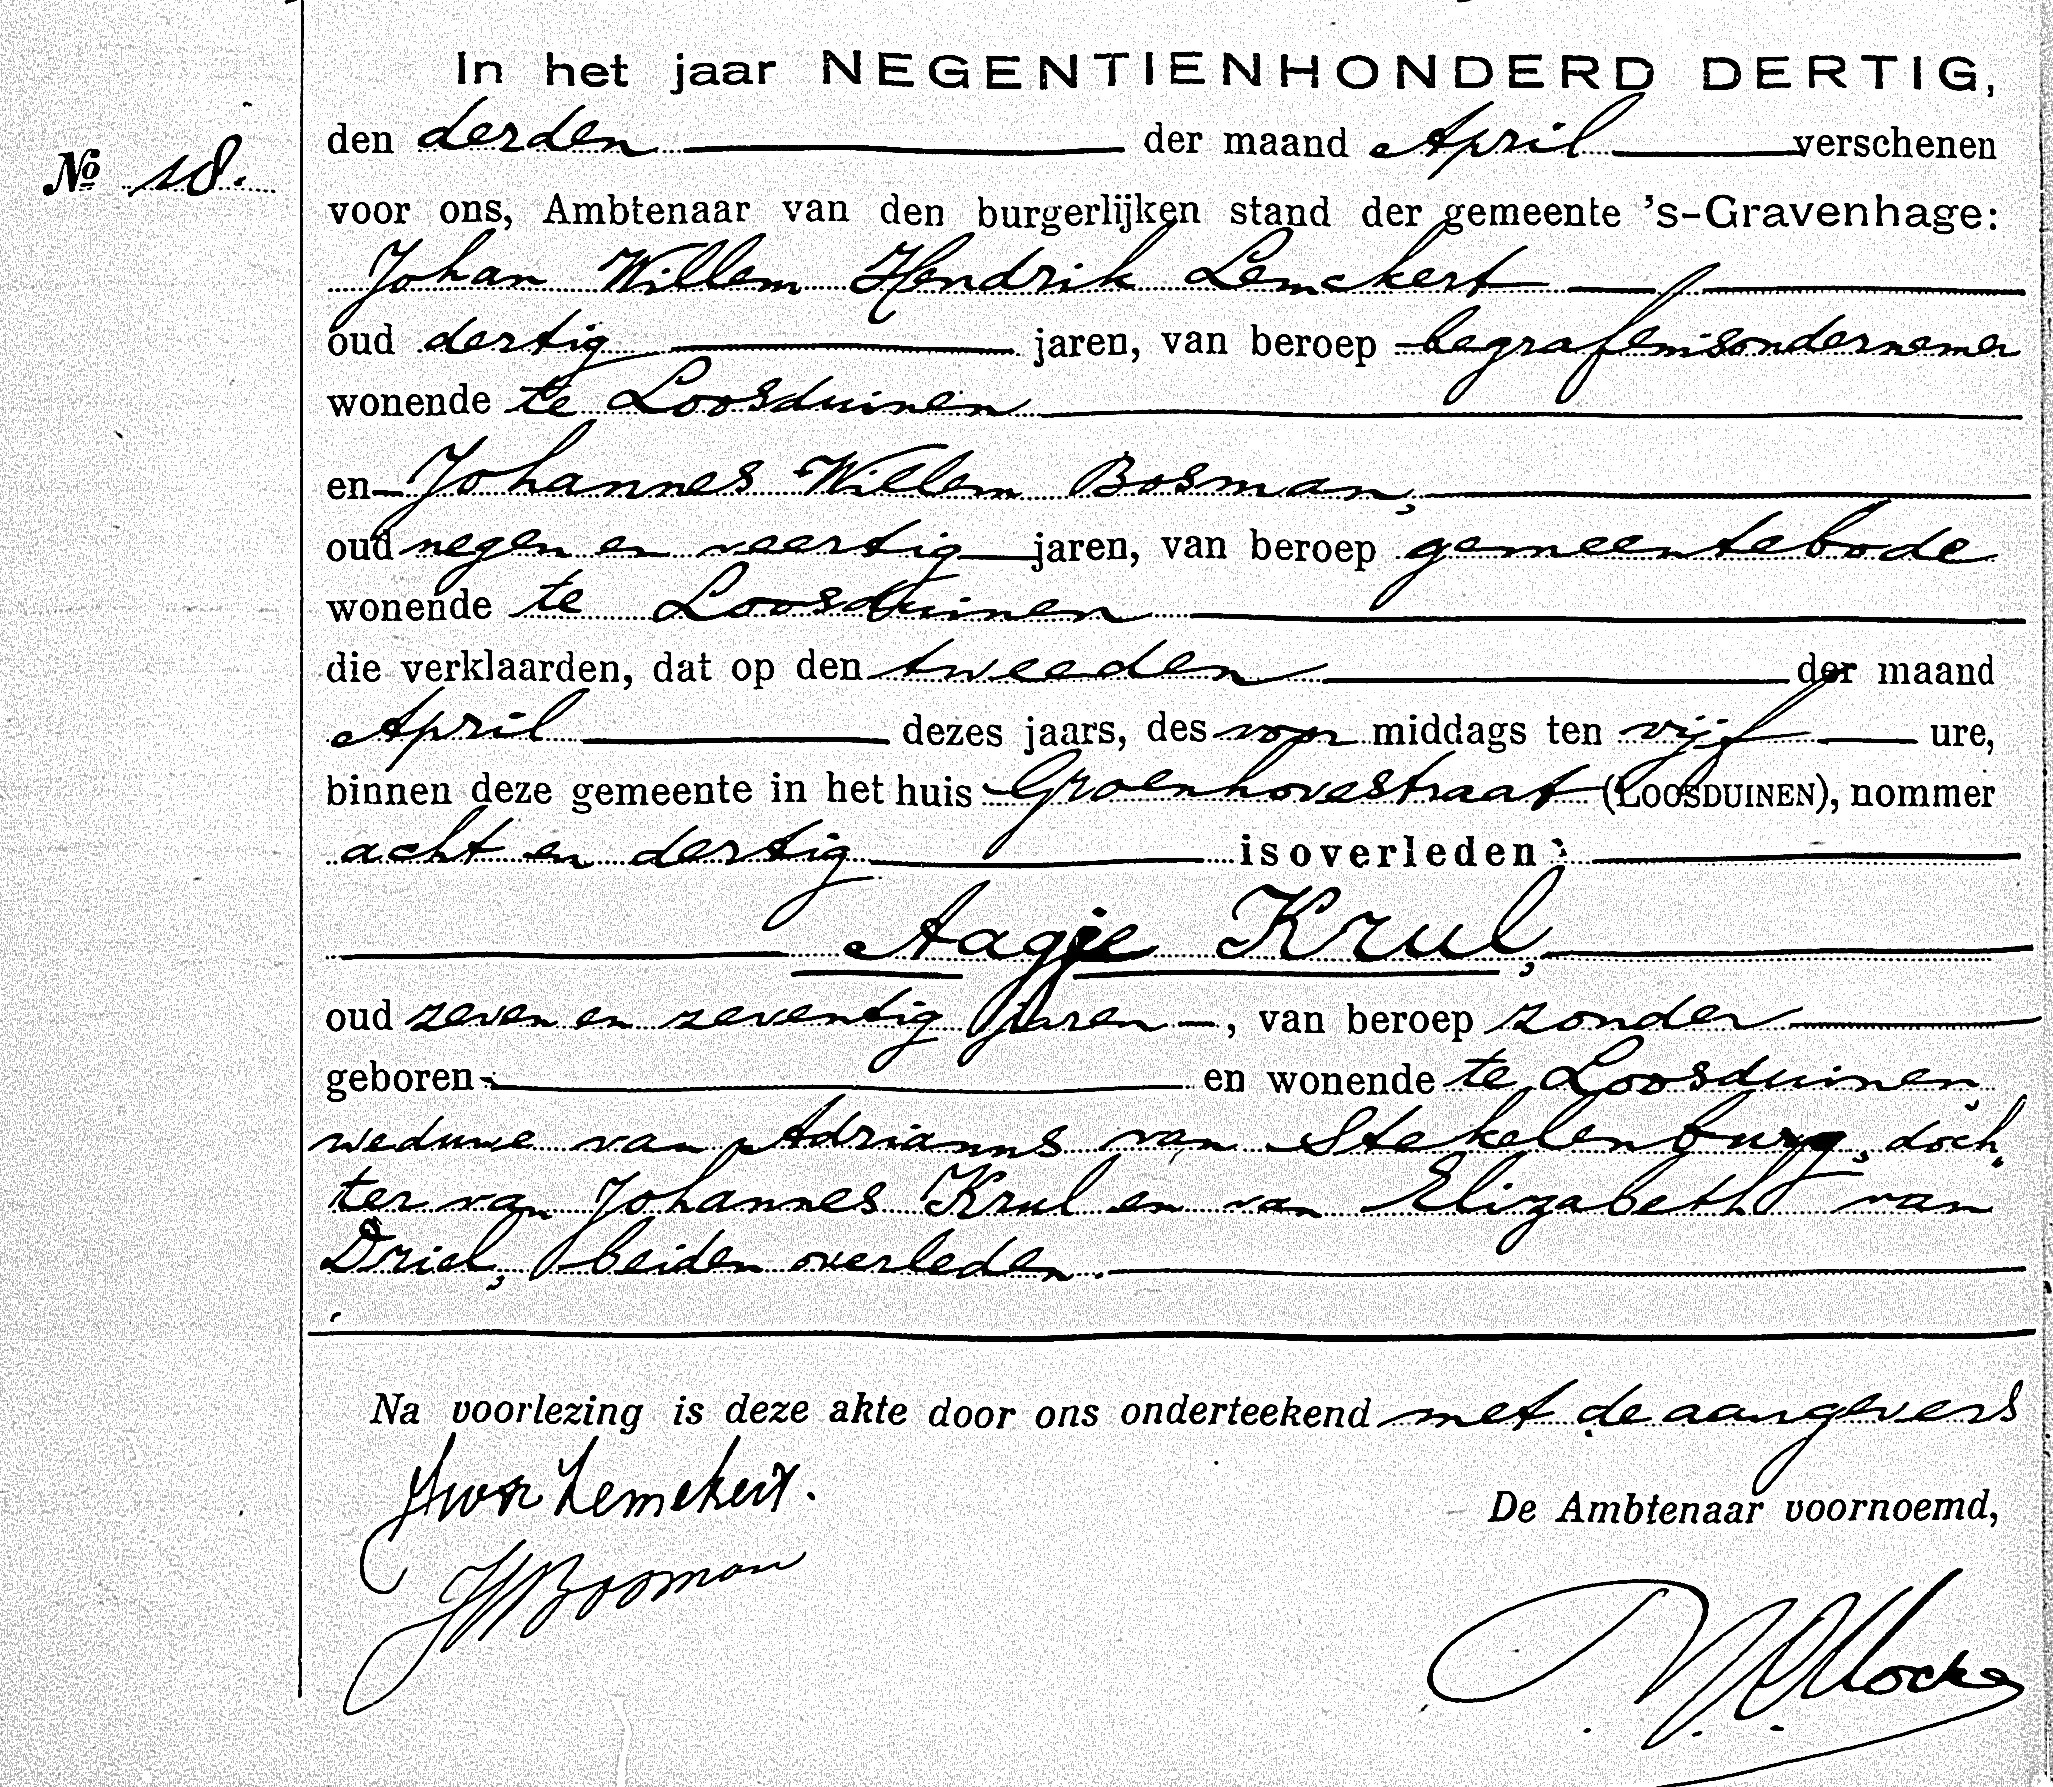 In het jaar NEGENTIENHONDERD DERTIG,
den derden der maand April verschenen
No 18.
voor ons, Ambtenaar van den burgerlijken stand der gemeente 's-Gravenhage:
Johan Willem Hendrik Lemckert
oud dertig jaren, van beroep begrafenisondernemer
wonende te Loosduinen
en Johannes Willem Bosman,
oud negen en veertig jaren, van beroep gemeentebode
wonende te Loosduinen
die verklaarden, dat op den tweeden der maand
April dezes jaars, des voor middags ten vijf ure,
binnen deze gemeente in het huis Groenhovestraat (LOOSDUINEN), nommer
acht en dertig is overleden:
Aagje Krul,
oud zeven en zeventig jaren, van beroep zonder
geboren en wonende te Loosduinen,
weduwe van Adrianus van Stekelenburg, doch-
ter van Johannes Krul en van Elizabeth van
Driel, beiden overleden.
Na voorlezing is deze akte door ons onderteekend met de aangevers
Lemckert.
De Ambtenaar voornoemd,
JWBosman